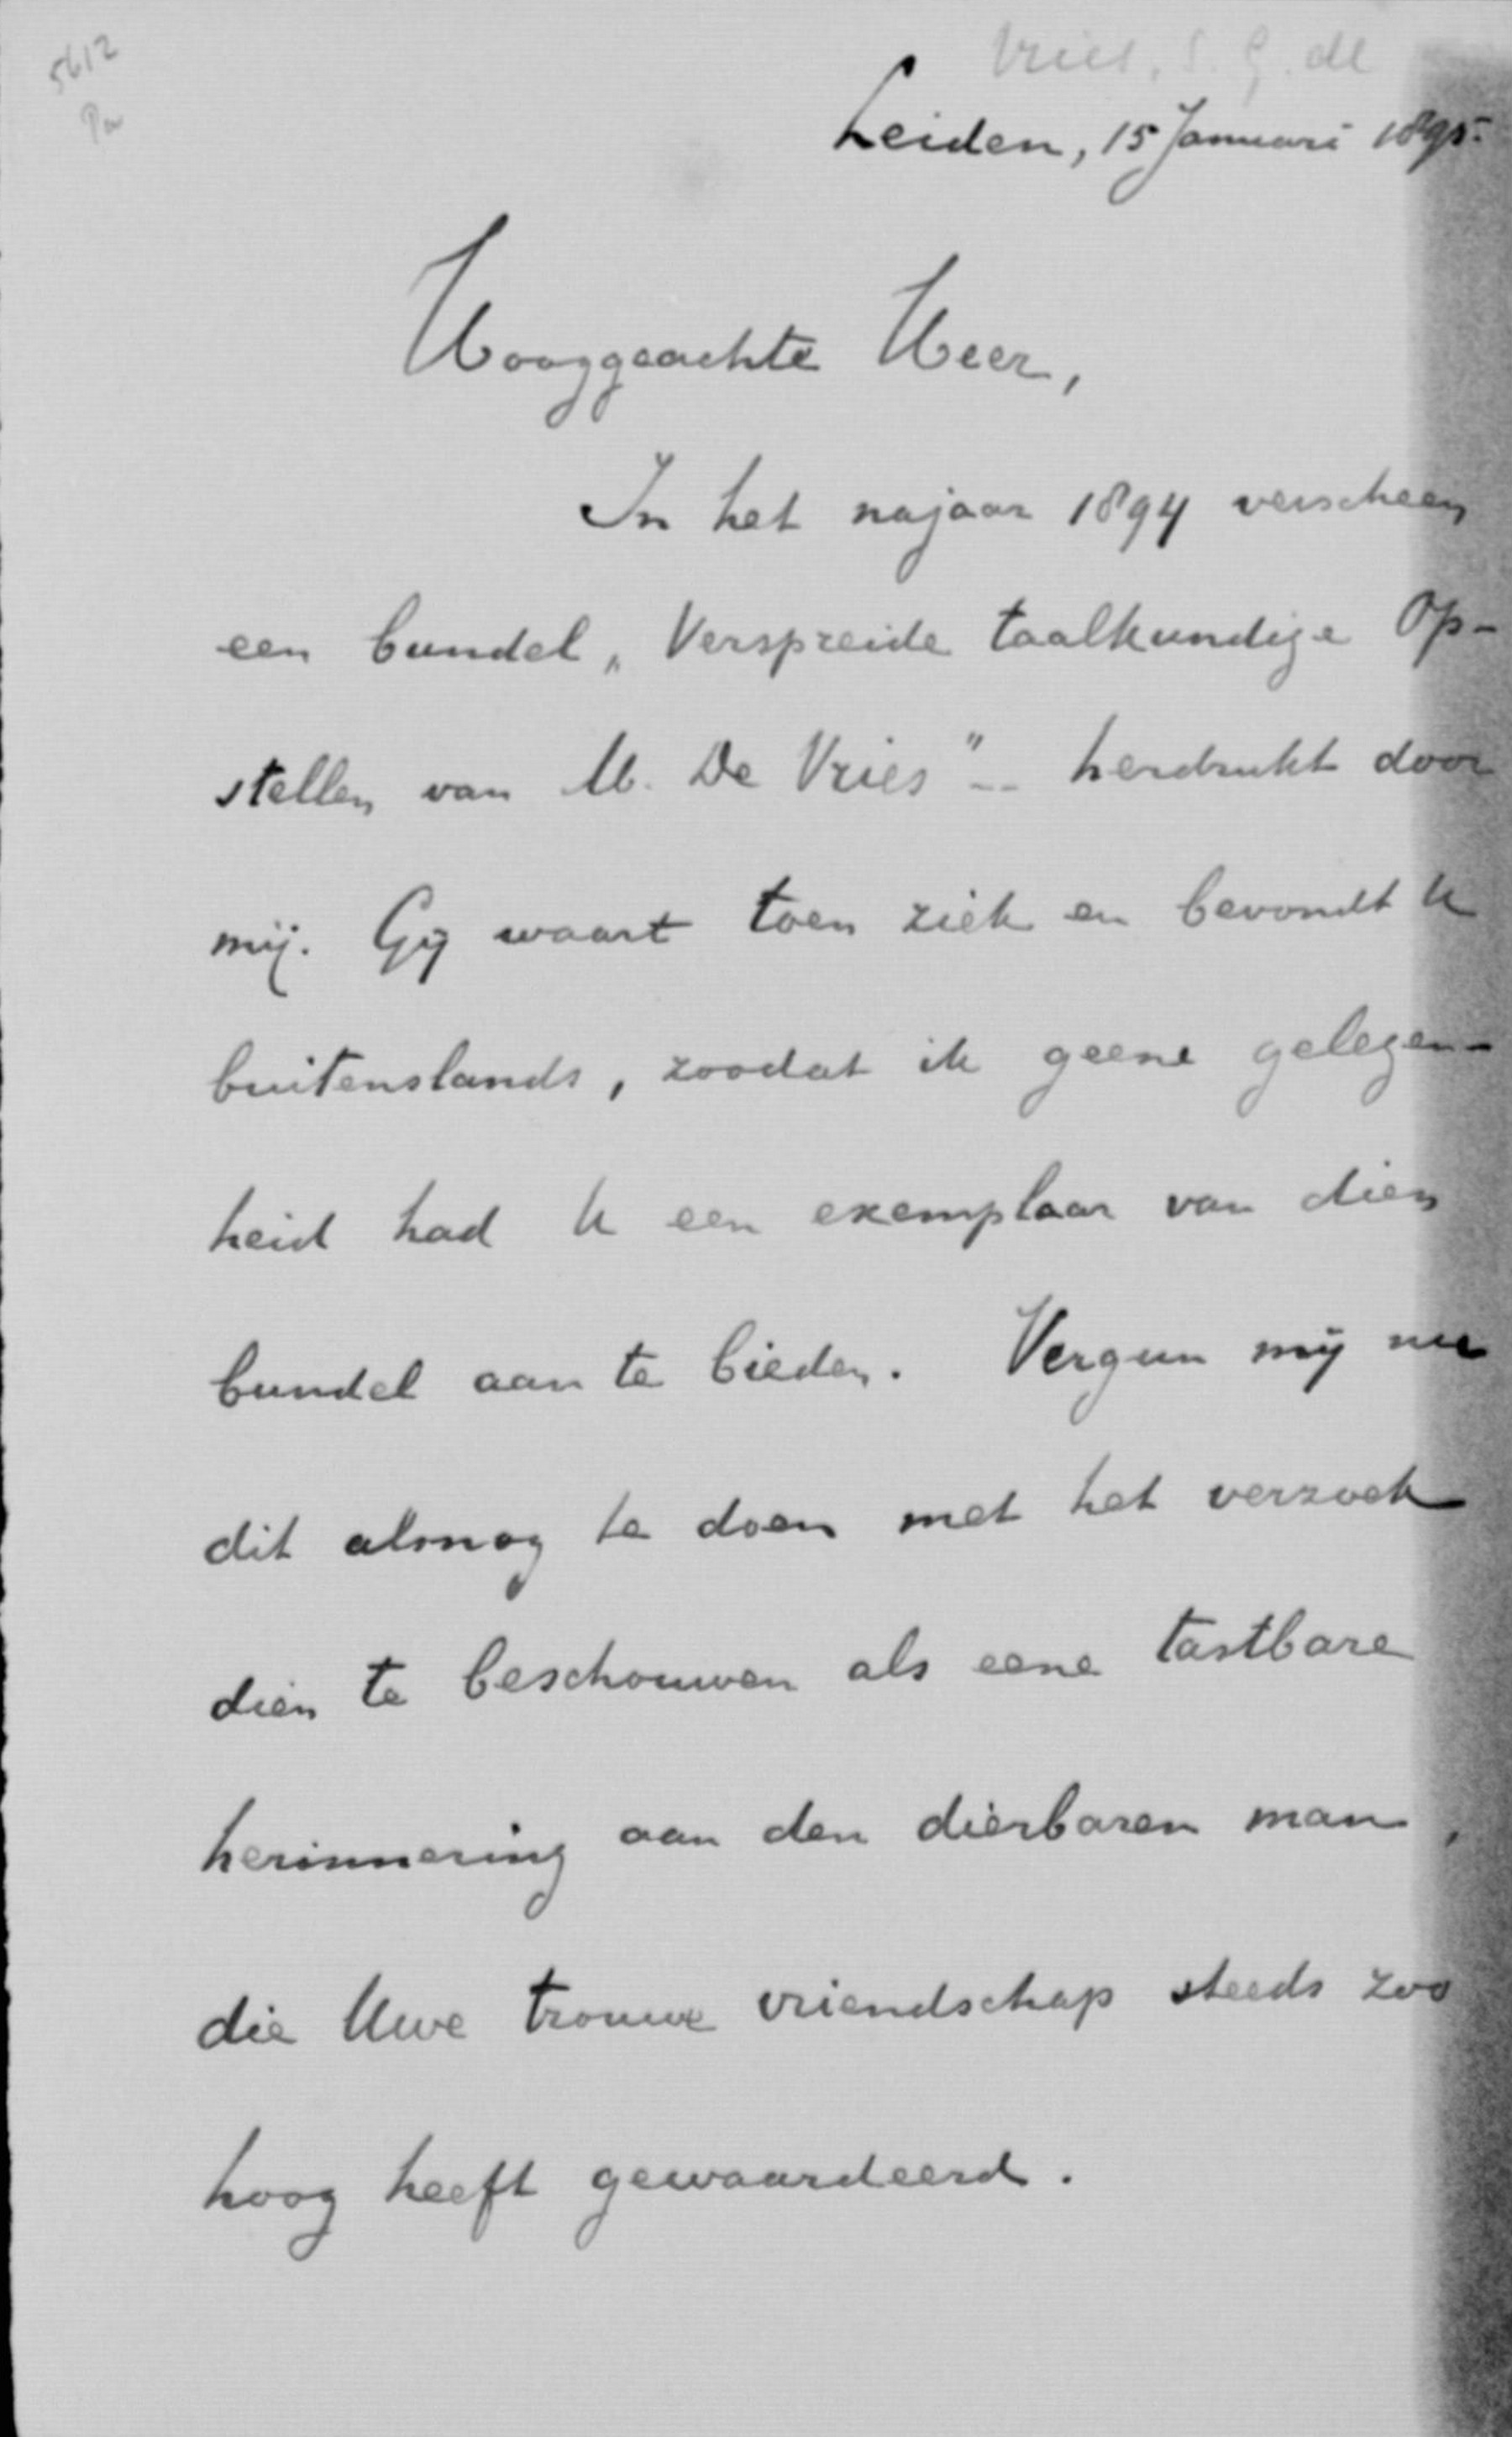 5612
Pa
Vries, S. G. de
Leiden, 15 Januari 1895.
Hooggeachte Heer,
In het najaar 1894 verscheen
een bundel „Verspreide taalkundige Op-
stellen van M. De Vries" -- herdrukt door
mij. Gij waart toen ziek en bevondt U
buitenslands, zoodat ik geene gelegen-
heid had U een exemplaar van dien
bundel aan te bieden. Vergun mij nu
dit alsnog te doen met het verzoek
dien te beschouwen als eene tastbare
herinnering aan den dierbaren man,
die Uwe trouwe vriendschap steeds zoo
hoog heeft gewaardeerd.